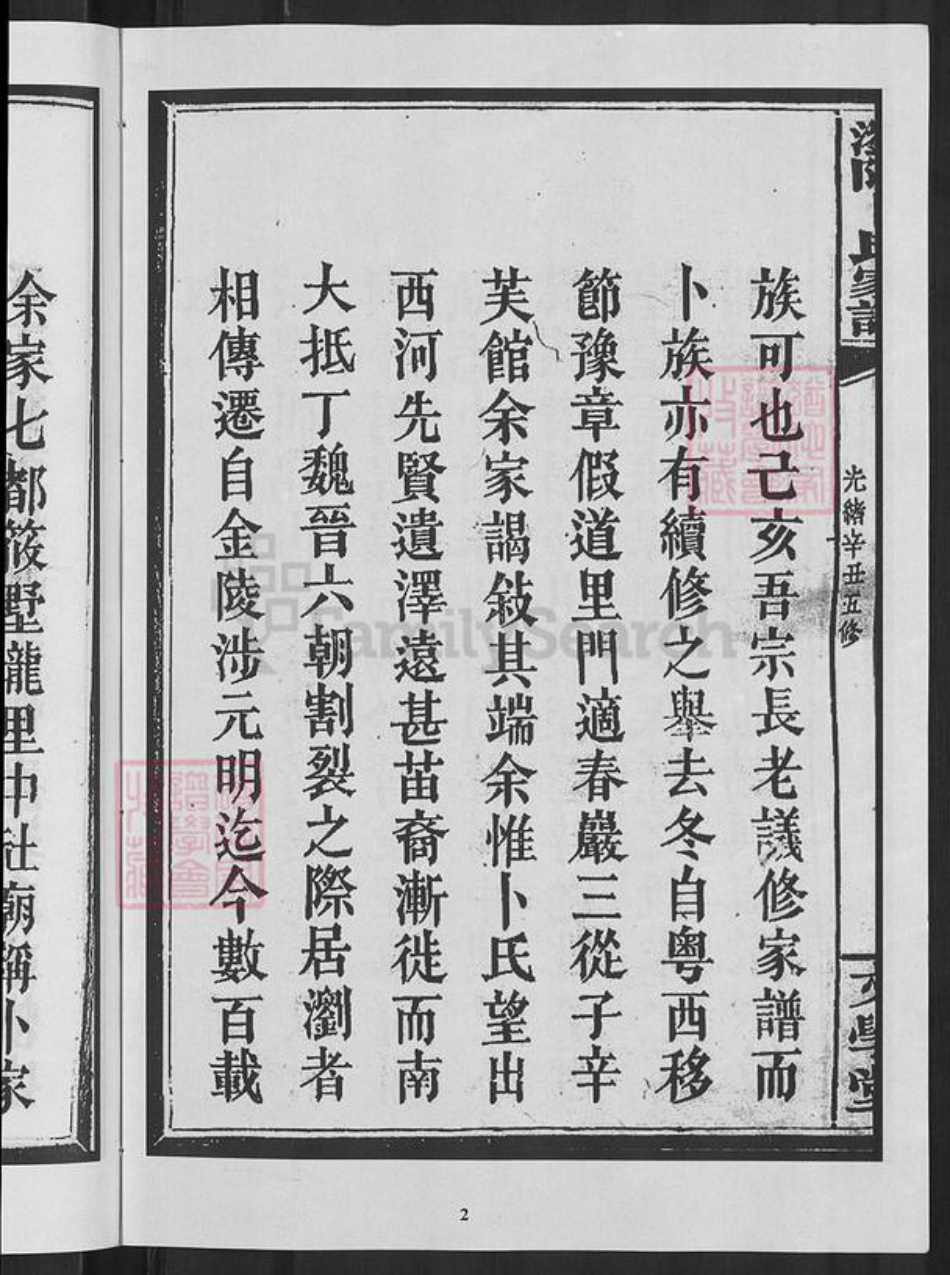 瀏陽 氏家譜
光緒辛丑五修
文學堂
族可也己亥吾宗長老議修家譜而
卜族亦有續修之舉去冬自粵西移
節豫章假道里門適春巖三從子辛
芙館余家謁敍其端余惟卜氏望出
西河先賢遺澤遠甚苗裔漸徙而南
大抵丁魏晉六朝割裂之際居瀏者
相傳遷自金陵涉元明迄今數百載
余家七都筱墅瀧里中社廟稱卜家
FamilySearch
2